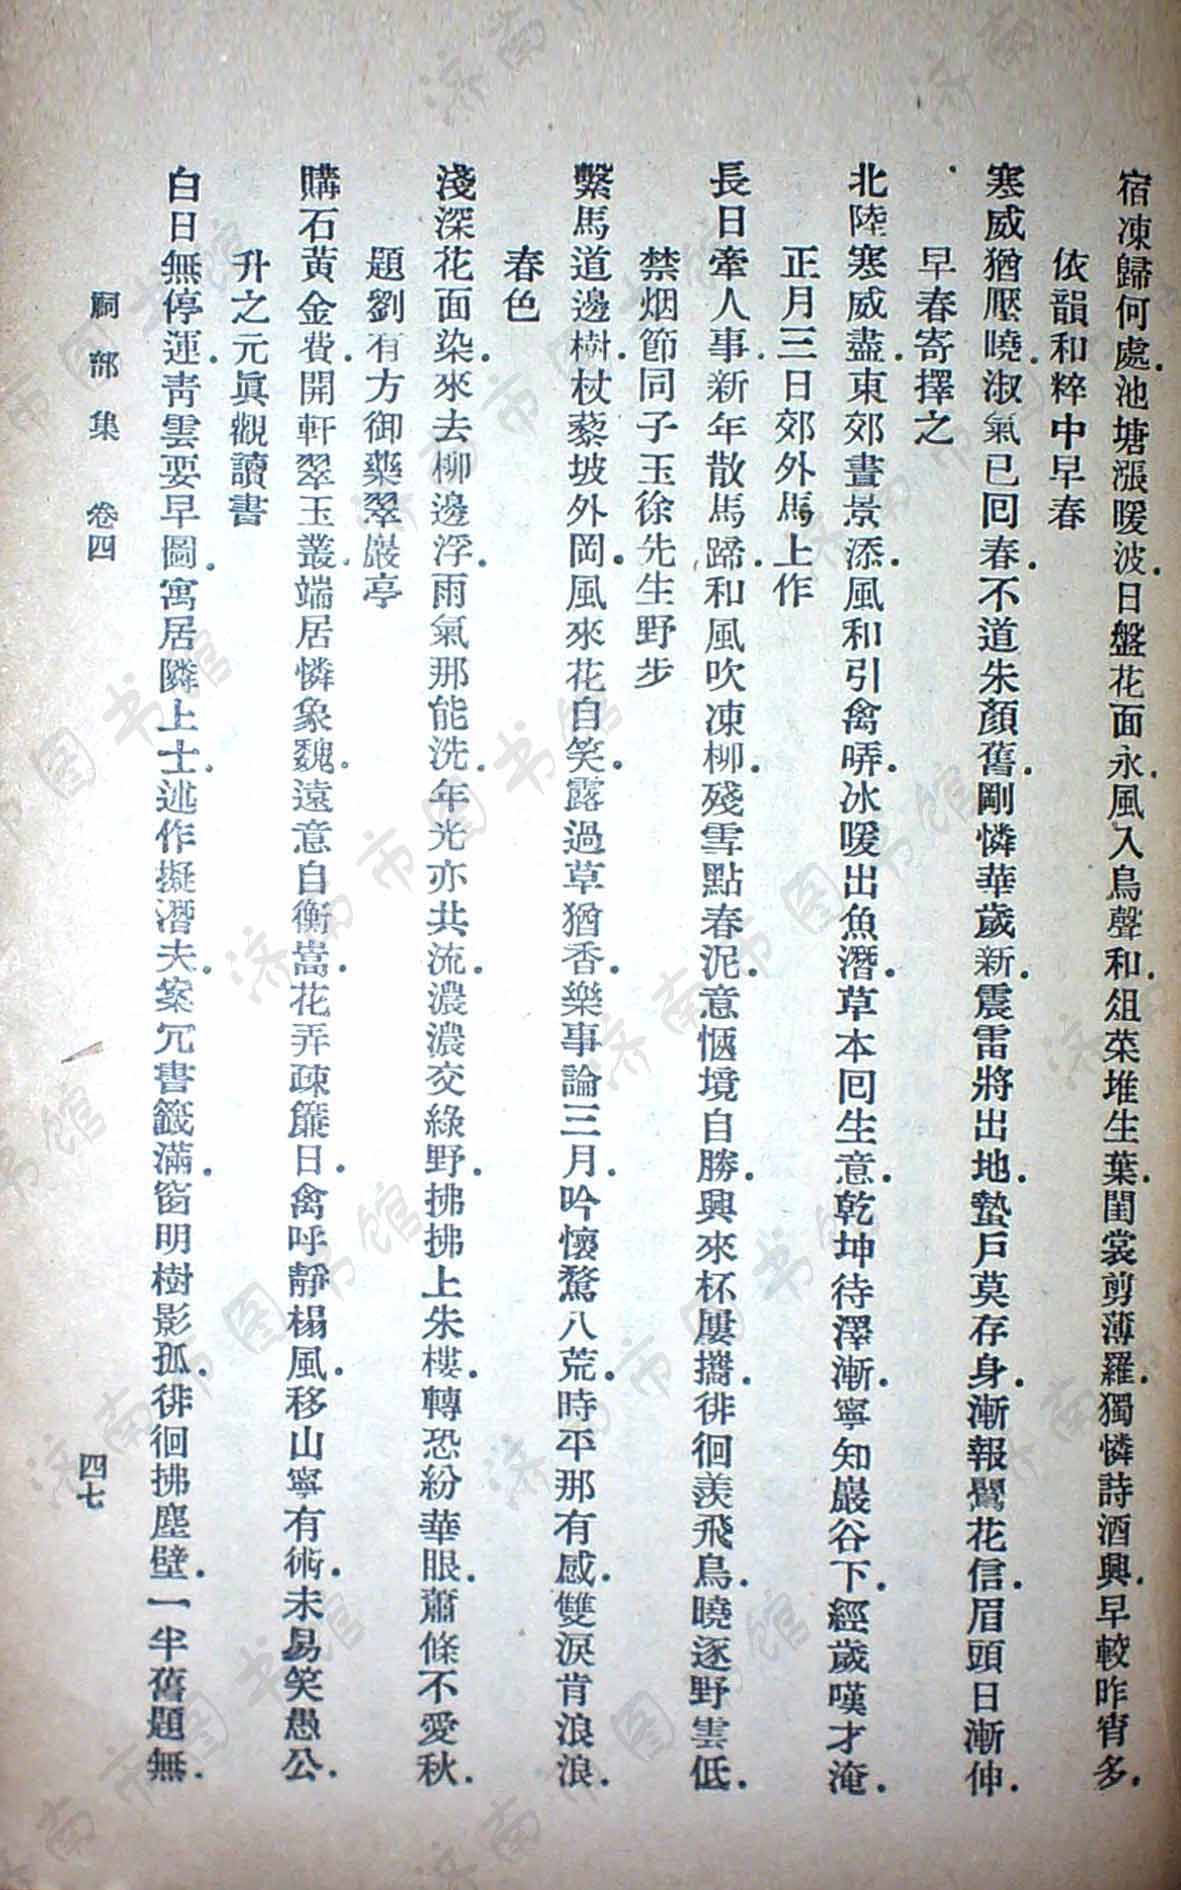 宿凍歸何處池塘漲暖波日盤花面永風入鳥聲和俎菜堆生葉閨裳剪薄羅獨憐詩酒興早較昨宵多
依韻和粹中早春
寒威猶壓曉淑氣已回春不道朱顏舊剛憐華歲新震雷將出地蟄戶莫存身漸報鶯花信眉頭日漸伸
早春寄擇之
北陸寒威盡東郊晝景添風和引禽哢冰暖出魚潛草本回生意乾坤待澤漸寧知巖谷下經歲嘆才淹
正月三日郊外馬上作
長日牽人事新年散馬蹄和風吹凍柳殘雪點春泥意愜境自勝興來杯屢攜徘徊羨飛鳥曉逐野雲低
禁烟節同子玉徐先生野步
繫馬道邊樹杖藜坡外岡風來花自笑露過草猶香樂事論三月吟懷騖八荒時平那有感雙淚肯浪浪
春色
淺深花面染來去柳邊浮雨氣那能洗年光亦共流濃濃交綠野拂拂上朱樓轉恐紛華眼蕭條不愛秋
題劉有方御藥翠巖亭
購石黃金費開軒翠玉叢端居憐象魏遠意自衡嵩花弄疎簾日禽呼靜榻風移山寧有術未易笑愚公
升之元眞觀讀書
白日無停運靑雲要早圖寓居隣上士述作擬潛夫案冗書籤滿窗明樹影孤徘徊拂塵壁一半舊題無
祠部集　卷四　四七